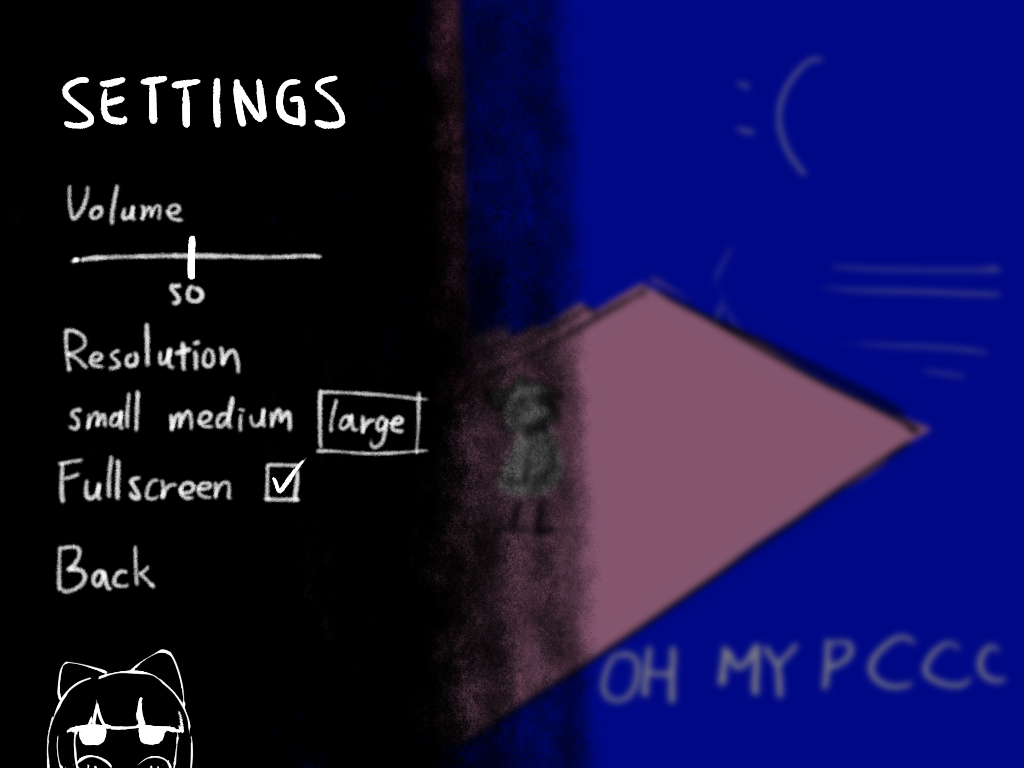 SETTINGS
Volume
50
Resolution
small medium large
Fullscreen
Back
:(
OH MY PCCC